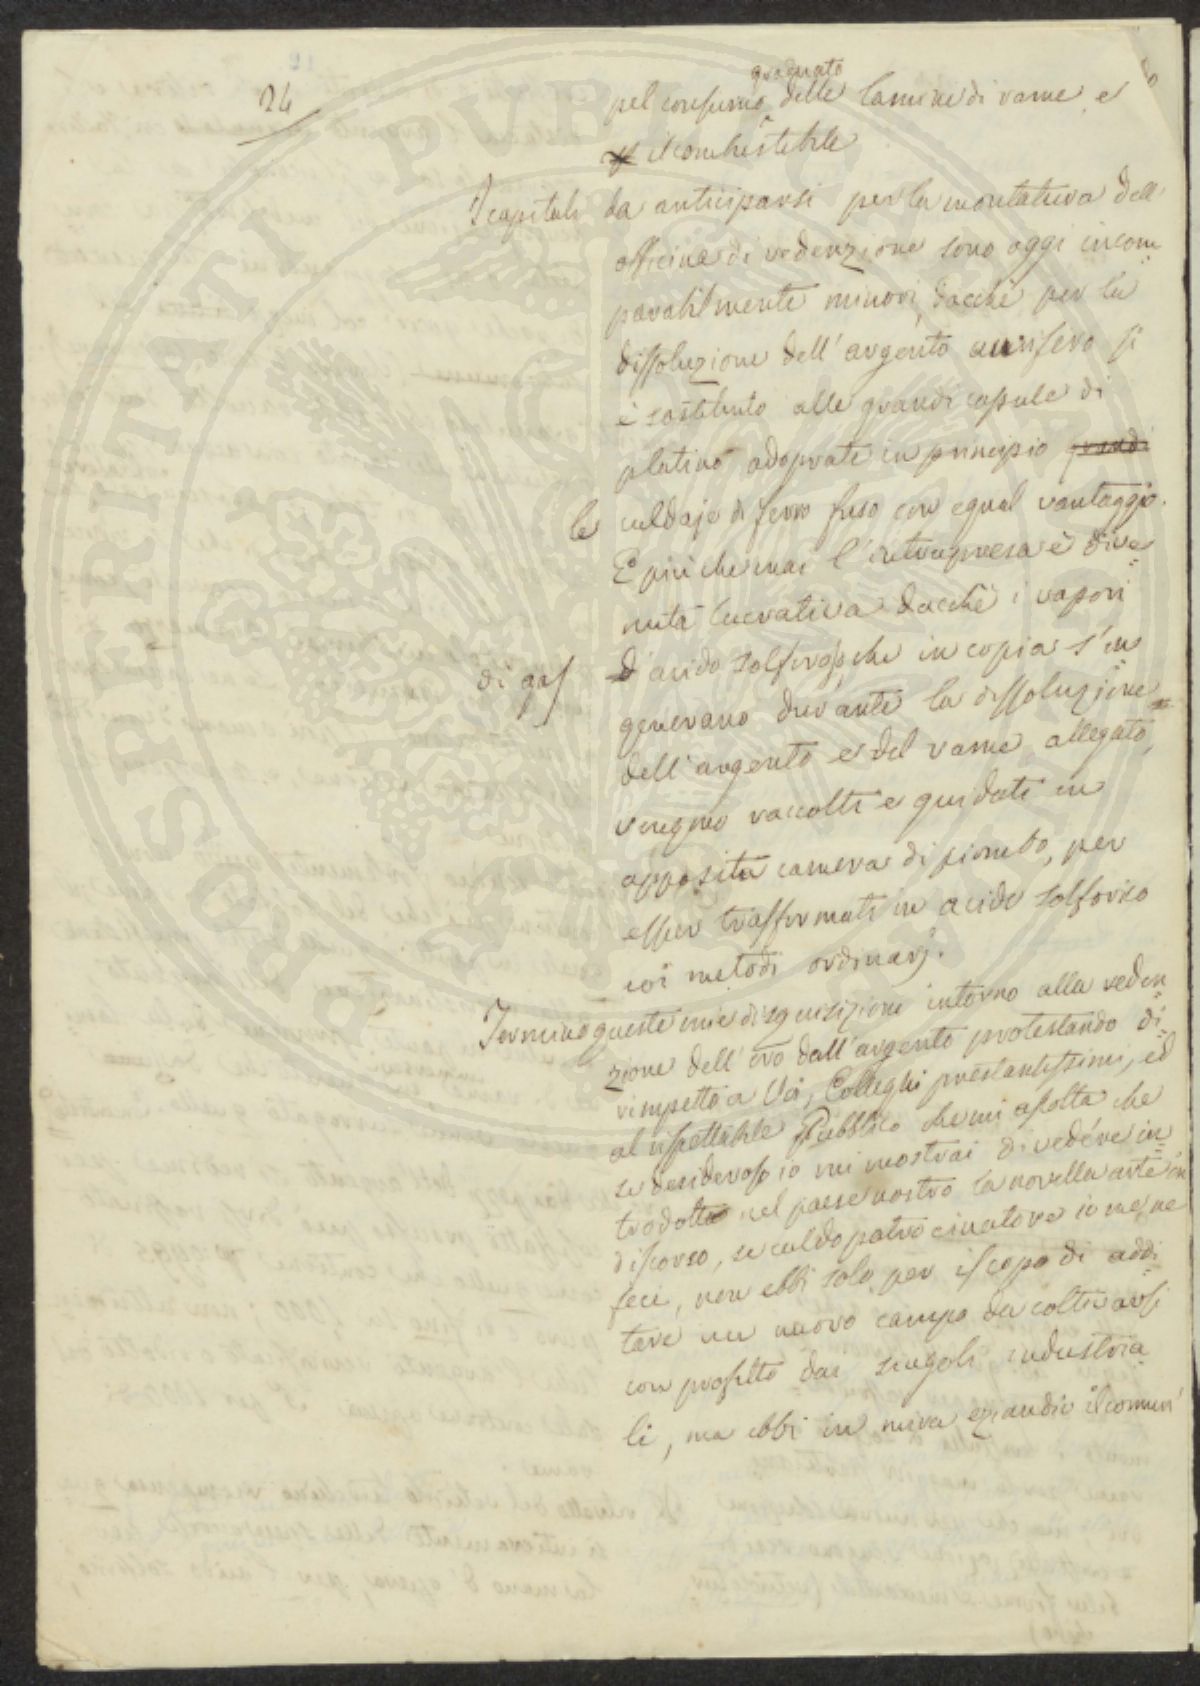 24
graduato
pel consumo delle lamine di rame, e
il combustibile
I capitali da anticiparsi per la montatura dell'
officina di redenzione sono oggi incom=
parabilmente minori, dacchè per la
dissoluzione dell'argento aurifero si
è sostituito alle grandi capsule di
platino adoprate in principio grandi
le caldaje di ferro fuso con egual vantaggio.
E più che mai l'intrapresa è dive=
nuta lucrativa dacchè i vapori
di gas d'acido solforoso, che in copia s'in=
generano durante la dissoluzione
dell'argento e del rame allegato,
vengono raccolti e guidati in
apposita camera di piombo, per
esser trasformati in acido solforico
coi metodi ordinarj.
Termino queste mie disquisizioni intorno alla reden=
zione dell'oro dall'argento protestando di=
rimpetto a Voi, Colleghi prestantissimi, ed
al rispettabile Pubblico che mi ascolta che
se desideroso io mi mostrai di vedere in=
trodotta nel paese nostro la novella arte in
discorso, se caldo patrocinatore io me ne
feci, non ebbi solo per iscopo di addi=
tare un nuovo campo da coltivarsi
con profitto dai singoli industria=
li, ma ebbi in mira eziandio il comun
PROSPERITATI PUBLICAE